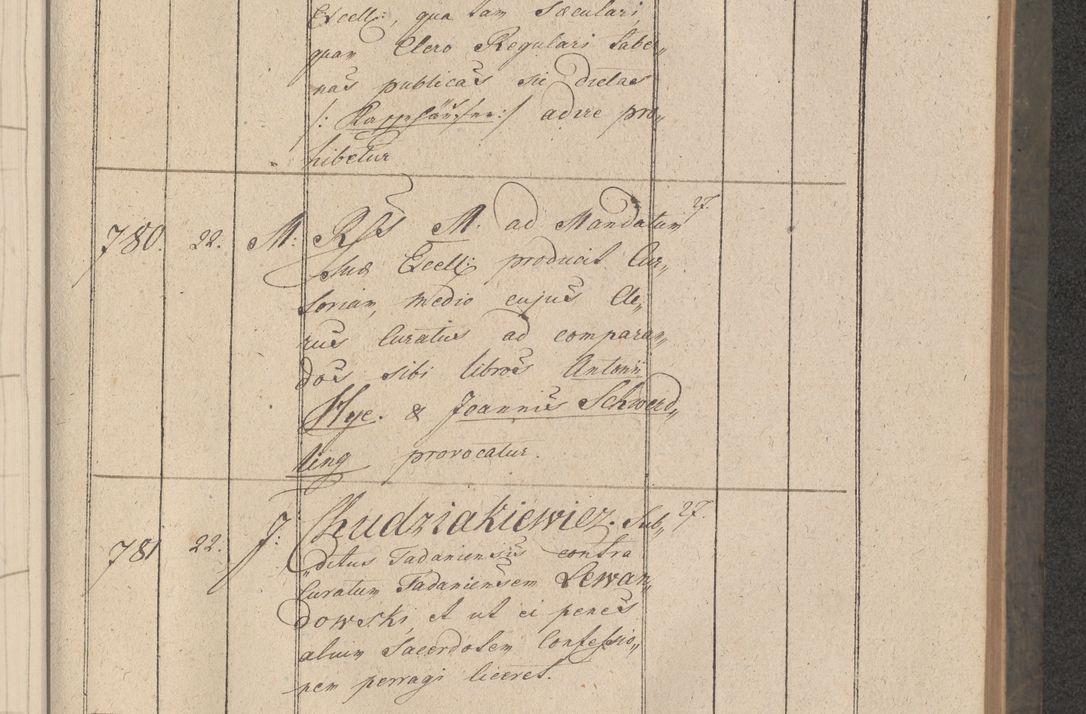 Excell:, qua tam Sæculari,
quam Clero Regulari Taber„
nas publicas sic dictas
/: Kaffehäuser :/ adire pro„
hibetur
780. 22. M: Rsſs M. ad Mandatum 27.
suæ Excell: producit Cur„
soriam, medio cujus Cle„
rus Curatus ad comparan„
dos sibi libros Antonii
Hye. & Joannis Schwerd„
ling provocatur.
781 22. J: Chudziakiewicz. Sub„ 27.
„ditus Tadaniensis contra
Curatum Tadaniensem Lewan„
dowski, et ut ei penes
alium Sacerdotem Confessio„
nem peragi liceret.